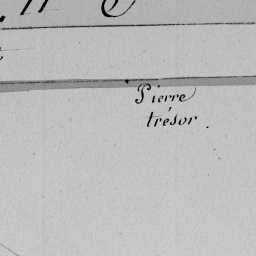 Pierre
trésor.